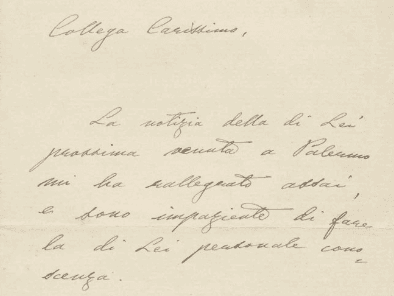 Collega Carissimo,
La notizia della di Lei
prossima venuta a Palermo
mi ha rallegrato assai,
e sono impaziente di fare
la di Lei personale cono=
scenza.